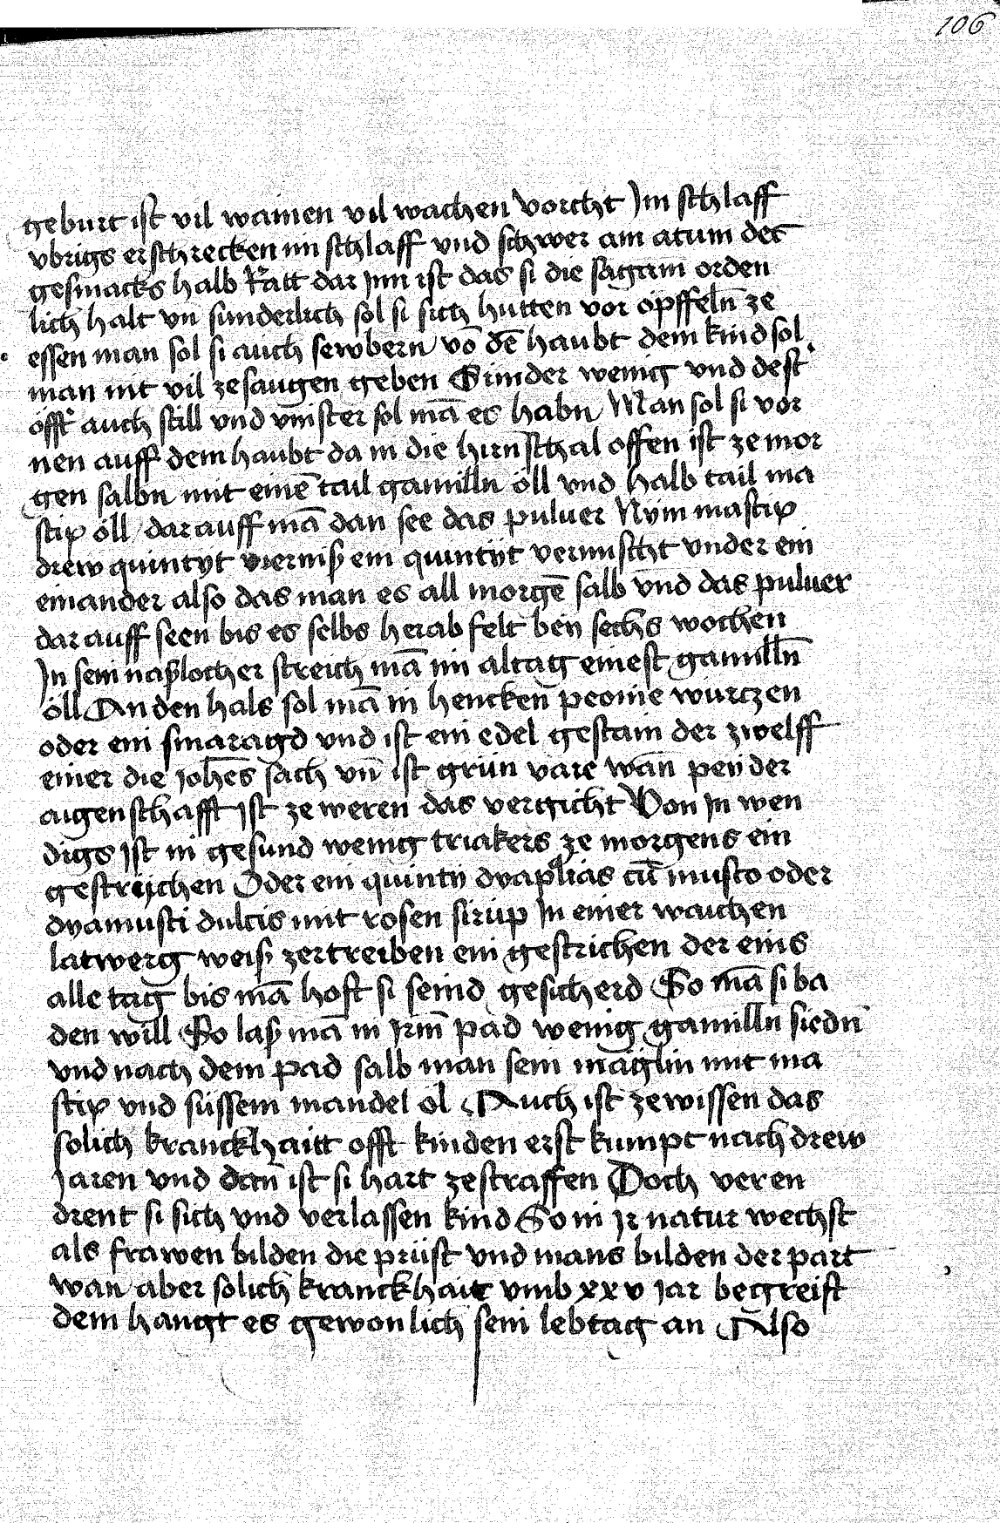 106
geburt ist vil wainen vil wachen vorcht Im schlaff
vbrigs erschrecken im schlaff vnd schwer am atum des
gesmacks halb Ratt dar Inn ist das si die sagam̄ orden
lich halt vn̄ sunderlich sol si sich hutten vor öpffeln̄ ze
essen man sol si auch sewbern vō dē haubt dem kind sol
man nit vil ze saugen geben Sunder wenig vnd dest
öfft auch still vnd vinster sol mā es habn Man sol si vor
nen auff dem haubt da in die hirnschal offen ist ze mor
gen salbn mit einē tail gamilln öll vnd halb tail ma
stix öll dar auff mā dan see das puluer Nym mastix
drew quintyt viernis ein quintyt vermischt vnder ein
einander also das man es all morgē salb vnd das puluer
dar auff seen bis es selbs herab felt beÿ sechs wochen
In sein naslocher streich mā im altag einest gamilln̄
öll An den hals sol mā in hencken peonie wurczen
oder ein smaragd vnd ist ein edel gestain der zwelff
einer die joh̄es sach vn̄ ist grün varc wan̄ peÿ der
aigenschafft ist ze weren das vergicht Von In wen
digs ist in gesund wenig triakers ze morgens ein
gestrÿchen Oder ein quintÿ dyaplias cū musco oder
dyamusci dulcis mit rosen sirüp In einer waichen
latwerg weiss zertreiben ein gestrichen der eins
alle tag bis mā hoft si seind gesicherd So mā si ba
den will So lass mā in irm̄ pad wenig gamilln siedn̄
vnd nach dem pad salb man sein mäglin mit ma
stix vnd süssem mandel öl Auch ist ze wissen das
solich kranckhaitt offt kinden erst kumpt nach drew
Jaren vnd dan̄ ist si hart zestraffen Doch veren
drent si sich vnd verlassen kind So in Ir natur wechst
als frawen bilden die prüst vnd mans bilden der part
wan aber solich kranckhait vmb xxv iar begreift
dem hangt es gewonlich sein lebtag an Also